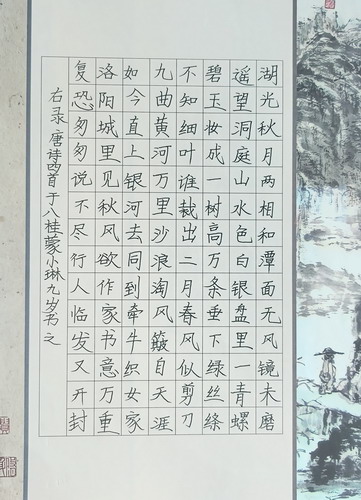 湖光秋月两相和潭面无风镜未磨
遥望洞庭山水色白银盘里一青螺
碧玉妆成一树高万条垂下绿丝绦
不知细叶谁裁出二月春风似剪刀
九曲黄河万里沙浪淘风簸自天涯
如今直上银河去同到牵牛织女家
洛阳城里见秋风欲作家书意万重
复恐匆匆说不尽行人临发又开封
右录唐诗四首于八桂蒙小琳九岁书之